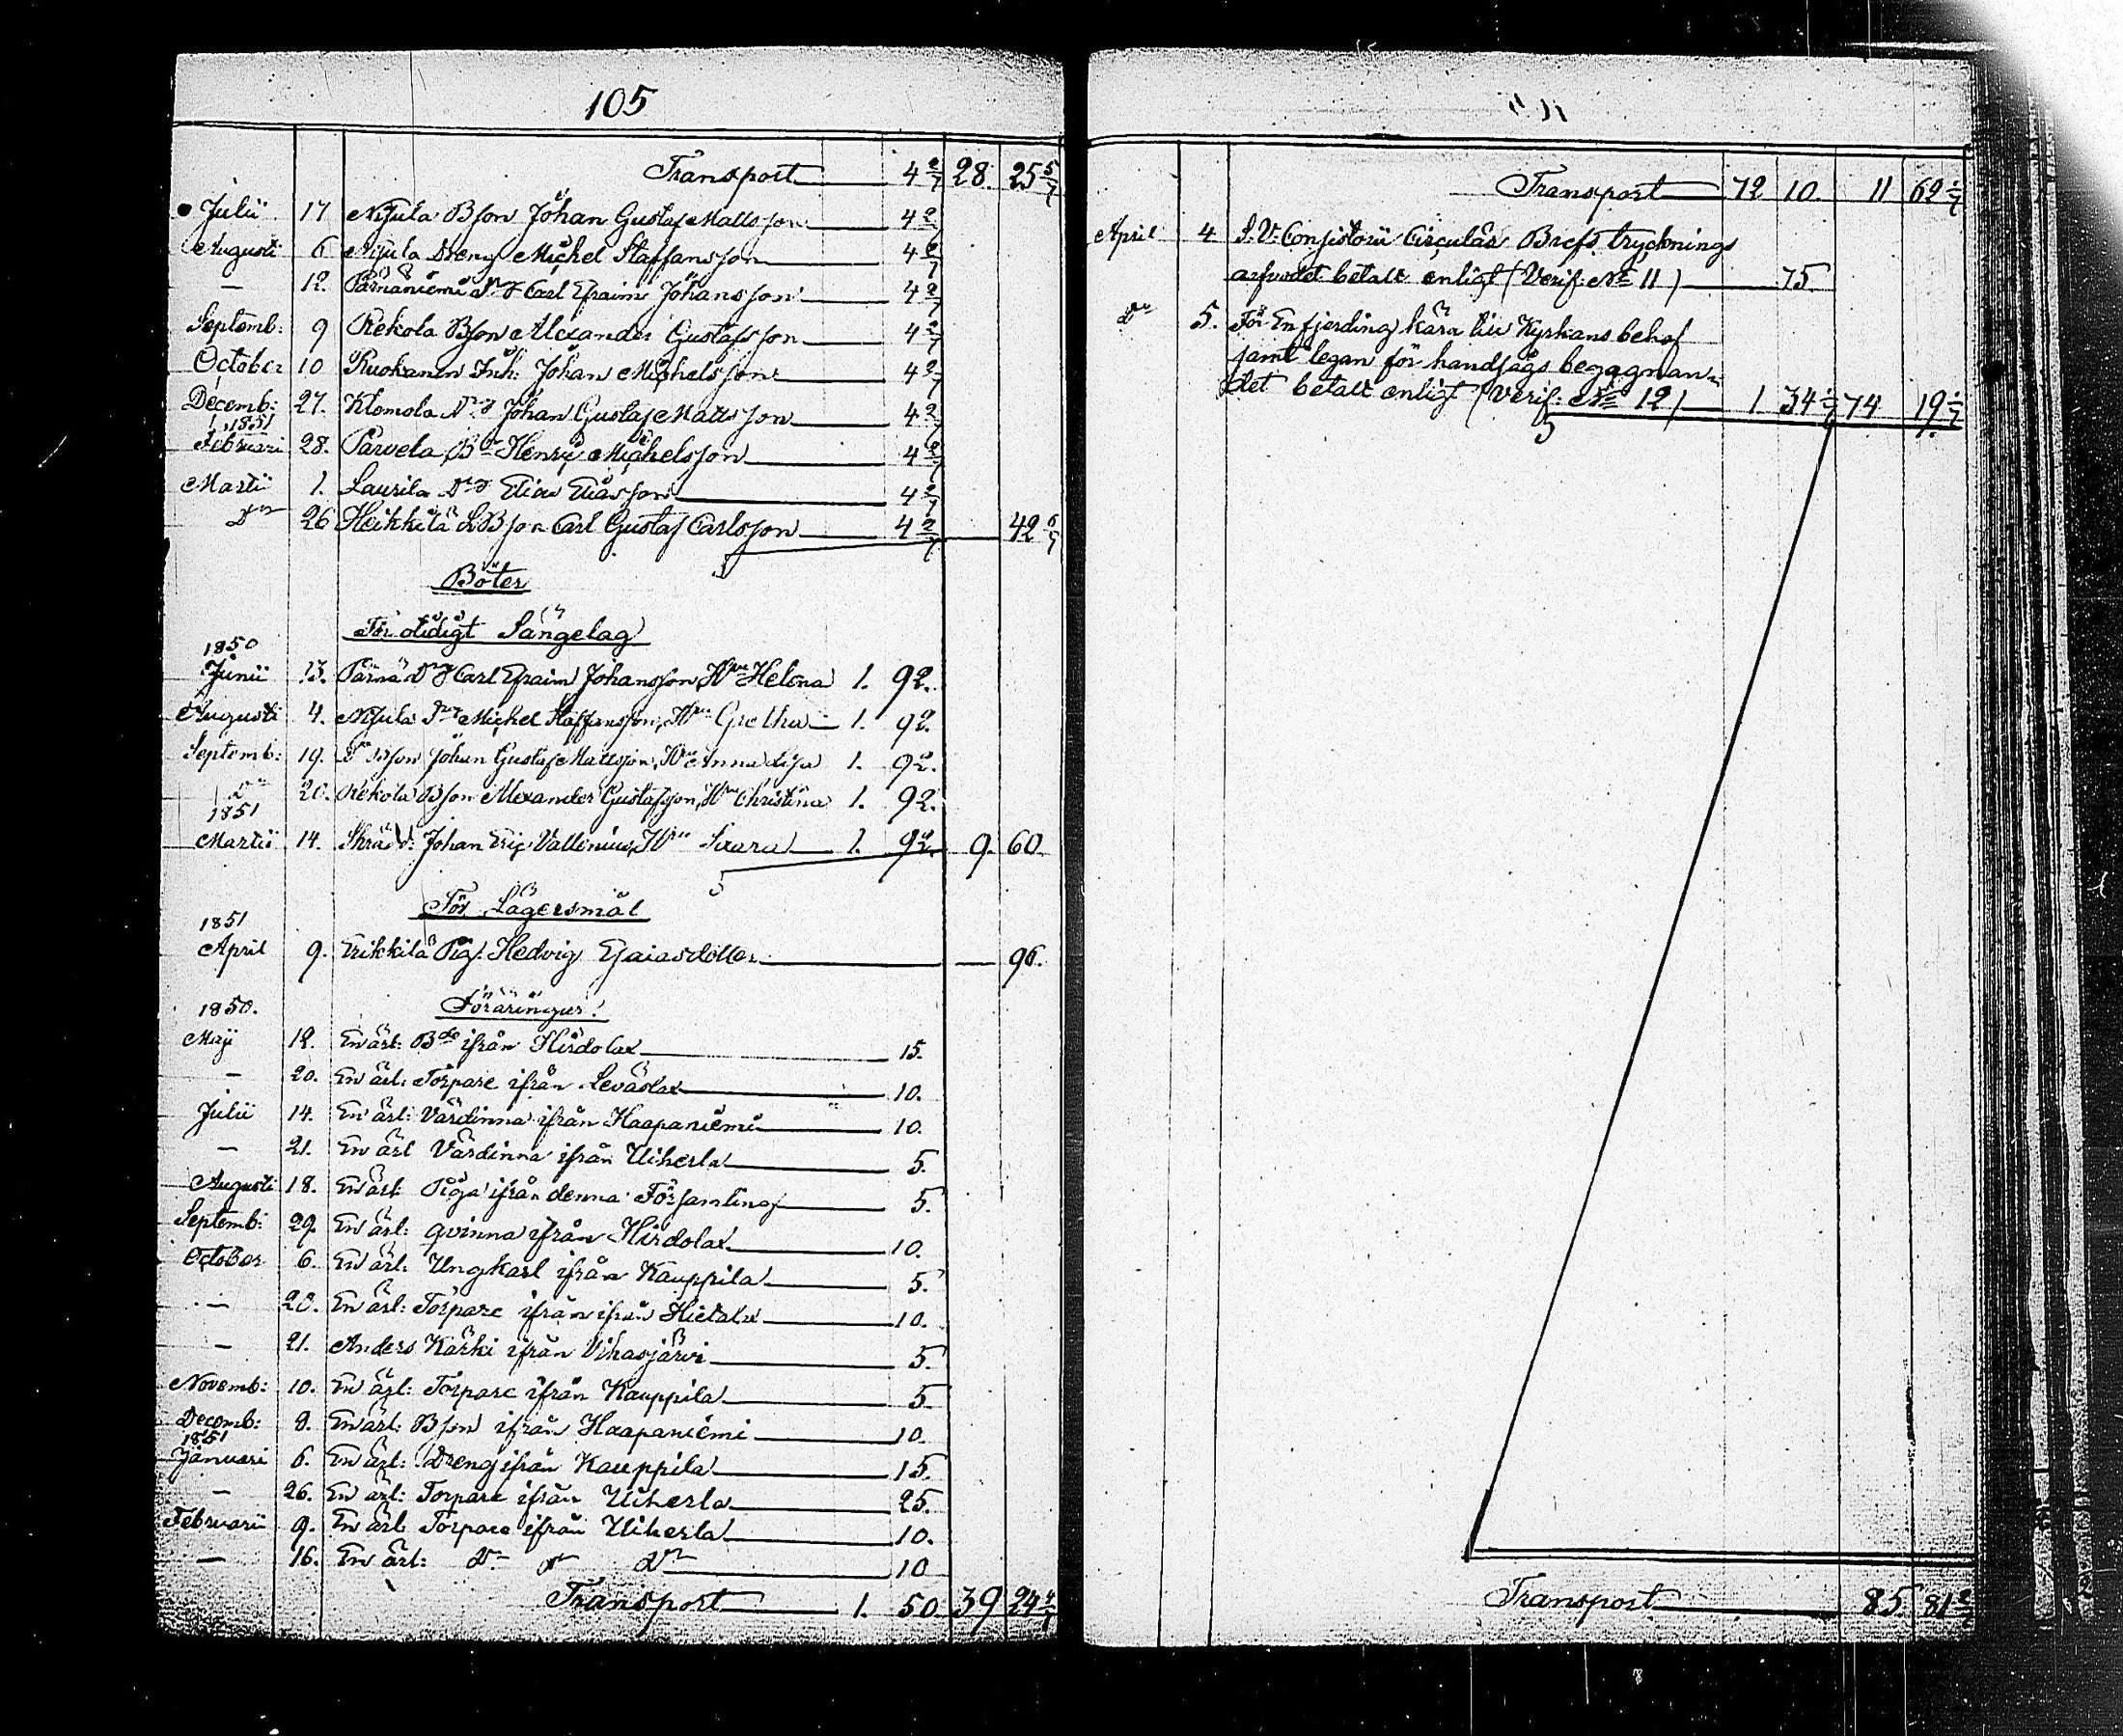 105
Transport 4 2/7 28. 25 5/7
Julii 17 Nijula Bson Johan Gustaf Mattsson 4 2/7
Augusti 6 Nijula Dreng Michel Staffansson 4 2/7
— 12. Pärnäniemi Carl Efraim Johansson 4 2/7
Septemb: 9 Rekola Bson Alexander Gustafsson 4 2/7
October 10 Ruokanen Inh: Johan Michelsson 4 2/7
Decemb: 27. Klomola Johan Gustaf Mattsson 4 2/7
1851
Februari 28. Parvela Henric Michelsson 4 2/7
Martii 1. Laurila Elias Eliasson 4 2/7
Dto 26 Heikkilä Bson Carl Gustaf Carlsson 4 2/7 42 6/7
Böter
För otidigt Sängelag
1850
Junii 13. Pärnä Carl Efraim Johansson, Helena 1. 92.
Augusti 4. Nijula Michel Staffansson, Gretha 1. 92.
Septemb: 19. Do Bson Johan Gustaf Mattsson, Anna Lisa 1. 92.
Do 20. Rekola Bson Alexander Gustafsson, Christina 1. 92.
1851
Martii 14. Skrädd: Johan Eric Vallenius, Saara 1. 92. 9. 60.
För Lägersmål
1851
April 9. Erikkilä Pig. Hedvig Esaiasdotter — 96.
1850.
Föräringar:
Maji 12. En ärl: Bde ifrån Hirdolax 15.
— 20. En ärl: Torpare ifrån Leväslax 10.
Julii 14. En ärl: Värdinna ifrån Haapaniemi 10.
— 21. En ärl Värdinna ifrån Uiherla 5.
Augusti 18. En ärl: Piga ifrån denna Församling 5.
Septemb: 29. En ärl: qvinna ifrån Hirdolax 10.
October 6. En ärl: Ungkarl ifrån Kauppila 5.
— 20. En ärl: Torpare ifrån ifrån Hietala 10.
— 21. Anders Kärki ifrån Vihasjärvi 5.
Novemb: 10. En ärl: Torpare ifrån Kauppila 5
Decemb: 8. En ärl: Bson ifrån Haapaniemi 10.
1851
Januari 6. En ärl: Dreng ifrån Kauppila 15.
— 26. En ärl: Torpare ifrån Uiherla 25.
Februarii 9. En ärl: Torpare ifrån Uiherla 10.
— 16. En ärl: Do Do Do 10
Transport 1. 50. 39 24 4/7
Transport 72 10. 11 62 1/7
April 4 Consistorii Circulär Brefs trycknings
arfvodet betalt enligt (Verif: No 11) 75
Do 5. För En fjerding kära till Kyrkans behof
samt legan för handsågs begagnan-
det betalt enligt (Verif: No 12) 1. 34 1/7 74 19 1/7
Transport 85. 81 2/7